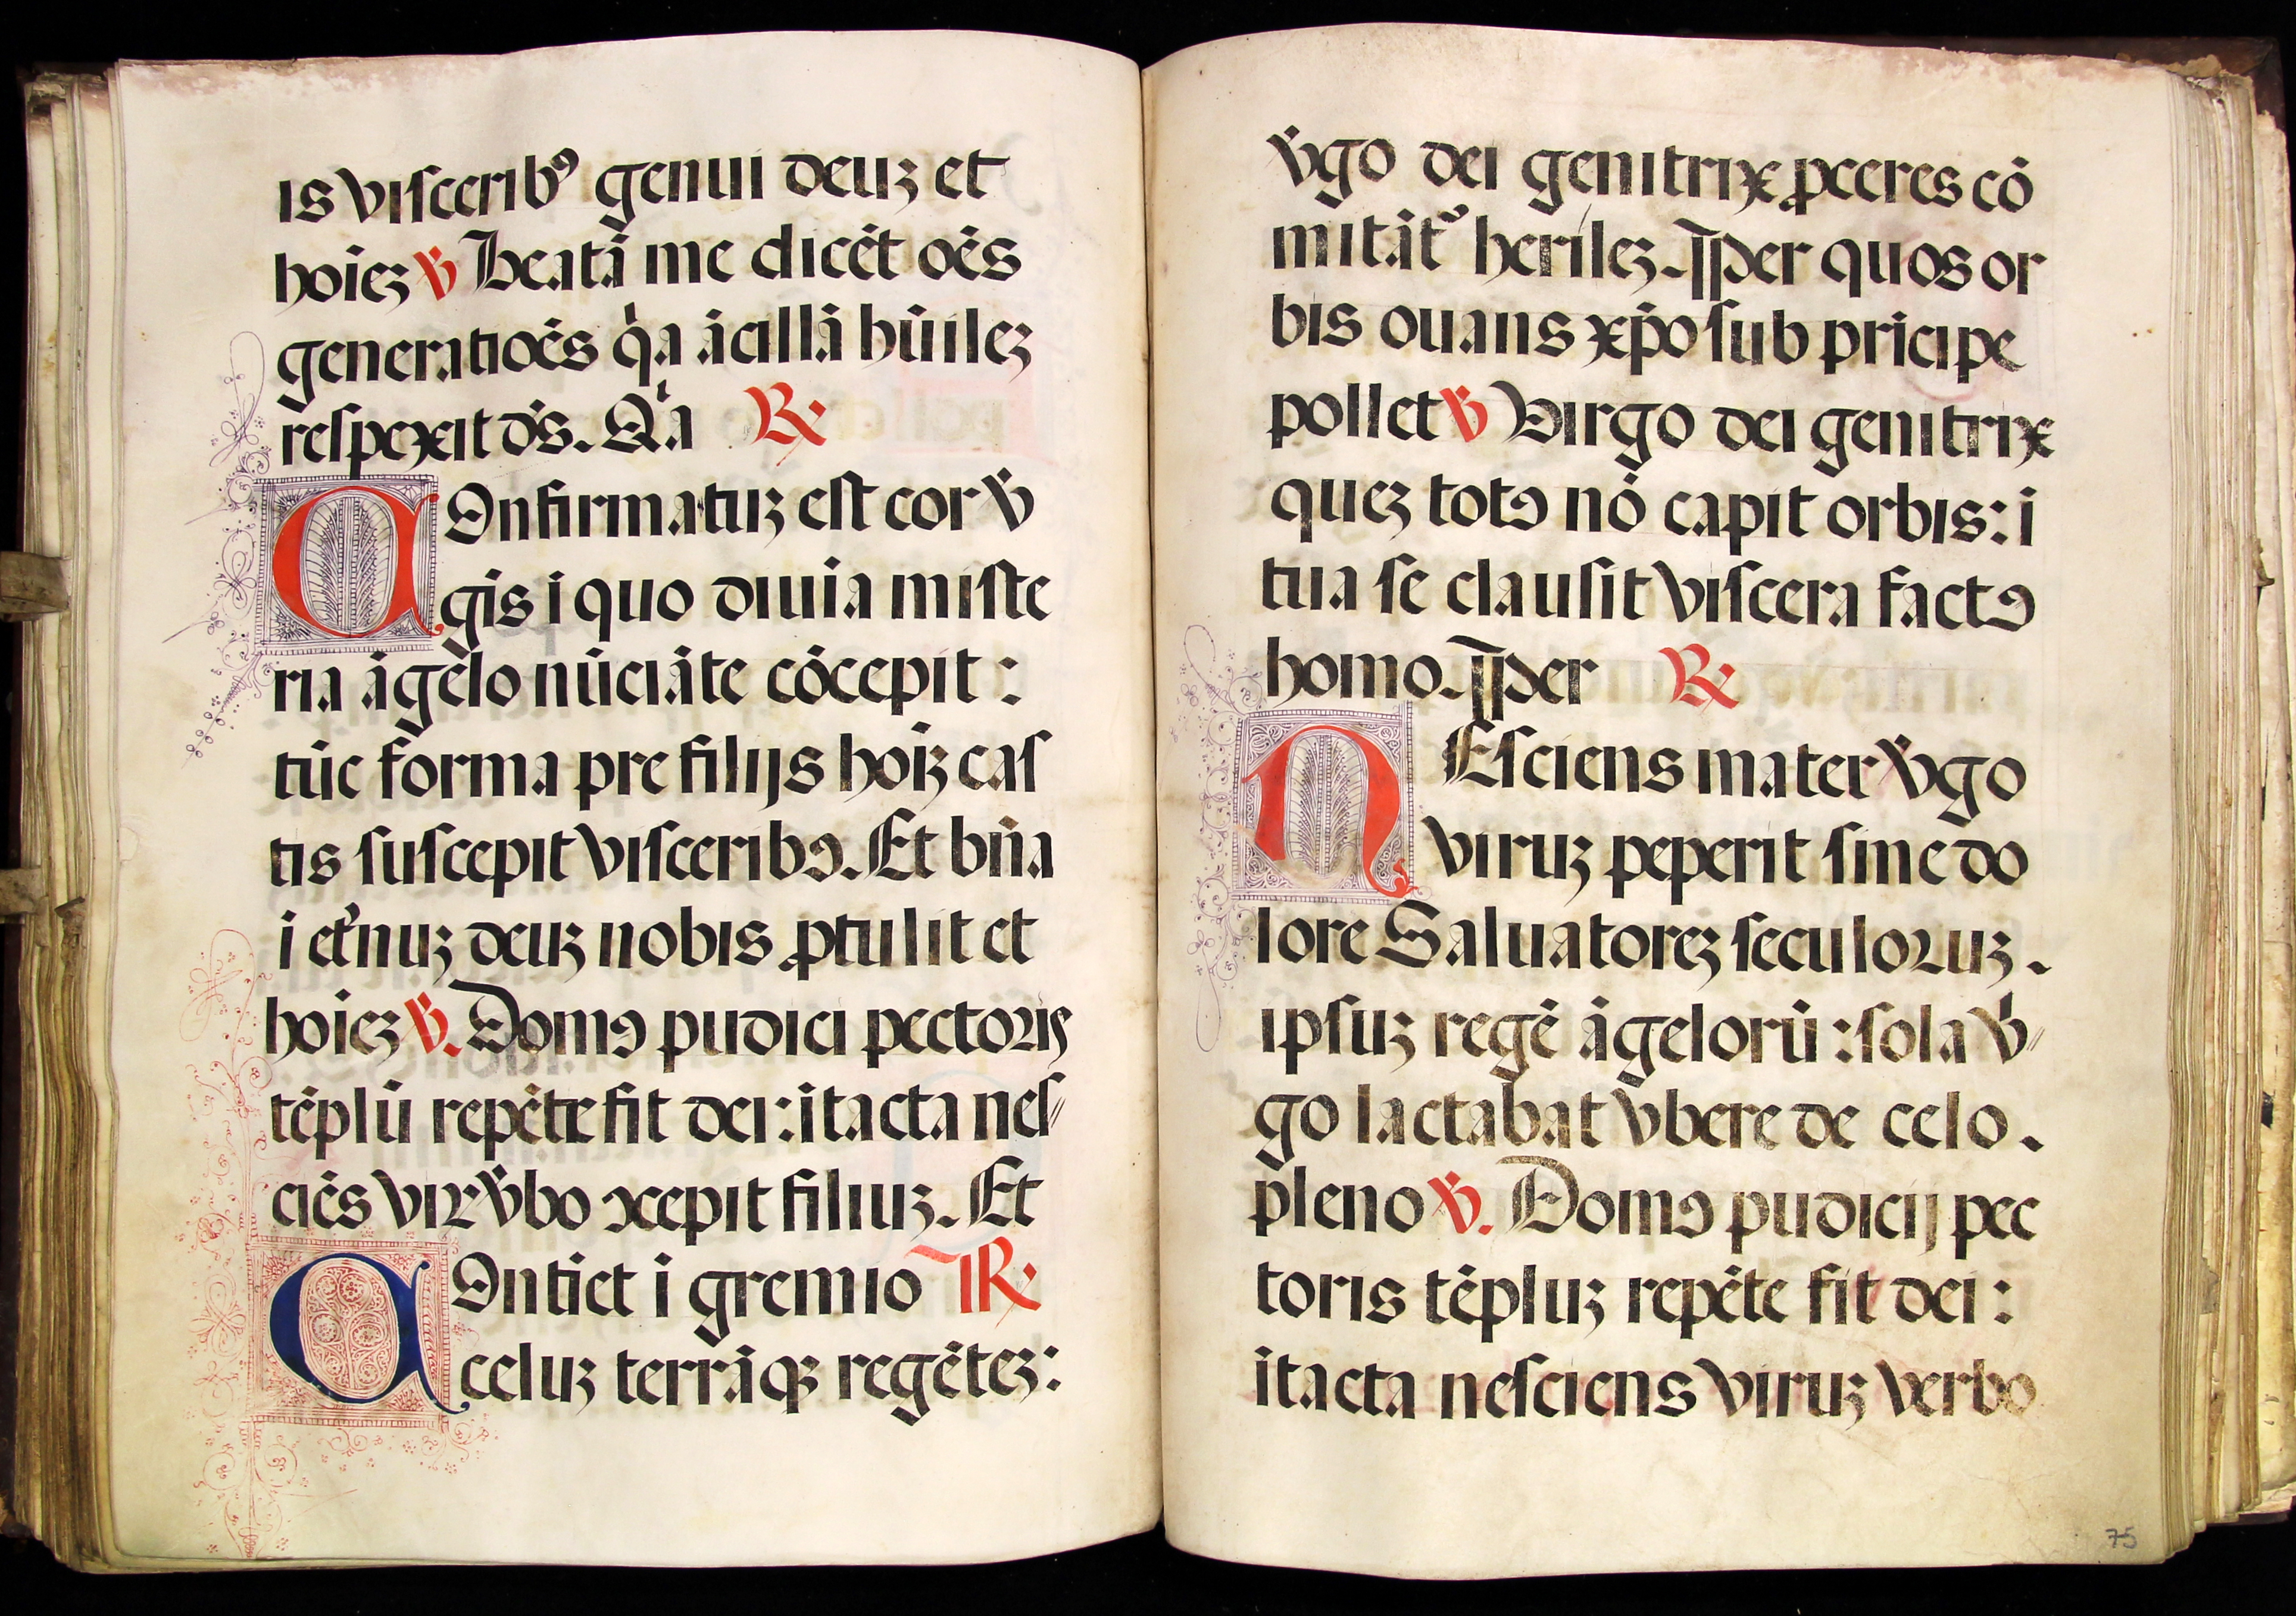 is viſceribꝰ genui deuʒ et
hoieʒ ℣ Beatā me dicēt oēs
generatiōes qͥa ācillā hūileʒ
reſpexit dn̄s. Qͥa ℟
COnfirmatuʒ eſt cor v̄
gīs ī quo diuīa miſte
ria āgelo nūciāte cōcepit:
tūc forma pre filijs hoīʒ caſ
tis ſuſcepit viſceribꝰ. Et bn̄a
ī et̓nuʒ deuʒ nobis ꝓtulit et
hoieʒ ℣. Domꝰ pudici pectoris
tēplū repēte fit dei: ītacta neſ
ciēs viꝝ v̄bo ꝯcepit filiuʒ. Et
COntīet ī gremio ℟
celuʒ terrāqʒ regēteʒ:
v̄go dei genitrix ꝓceres cō
mitātᷣ herileʒ. ¶Per quos or
bis ouans xp̄o ſub prīcipe
pollet ℣ Virgo dei genitrix
queʒ totꝰ nō capit orbis: ī
tua ſe clauſit viſcera factꝰ
homo. ¶Per ℟
NEſciens mater v̄go
viruʒ peperit ſine do
lore Saluatoreʒ ſeculoꝛuʒ.
ipſuʒ regē āgelorū: ſola v̄
go lactabat vbere de celo.
pleno ℣. Domꝰ pudicij pec
toris tēpluʒ repēte fit dei:
ītacta neſciens viruʒ verbo
75